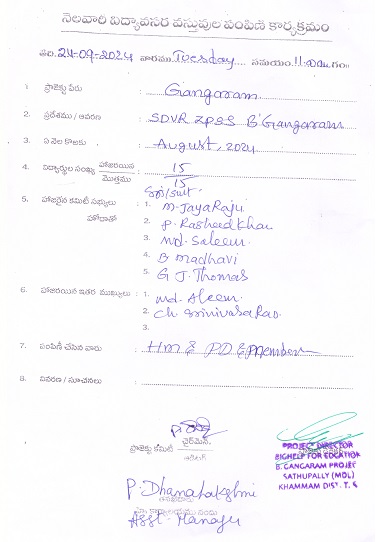 నెలవారీ విద్యావసర వస్తువుల పంపిణీ కార్యక్రమం
తేది. 24-09-2024 వారము Tuesday సమయం. 11.00am. గం॥
1. ప్రాజెక్టు పేరు : Gangaram
2. ప్రదేశము / ఆవరణ : SDVR ZPSS B'Gangaram
3. ఏ నెల కొరకు : August, 2024
4. విద్యార్థుల సంఖ్య హాజరయిన : 15
మొత్తము 15
Sri/Smt.
5. హాజరైన కమిటీ సభ్యులు : 1. M. JayaRaju
హోదాతో 2. P. Rasheed Khan
3. Md. Saleem
4. B madhavi
5. G J. Thomas
6. హాజరయిన ఇతర ముఖ్యులు : 1. Md. Aleem
2. Ch. Srinivasa Rao
3.
7. పంపిణీ చేసిన వారు : HM & PD & Members
8. వివరణ / సూచనలు :
చైర్‌మెన్
ప్రాజెక్టు కమిటీ
PROJECT DIRECTOR
BIGHELP FOR EDCATION
B. GANGARAM PROJET
SATHUPALLY (MDL)
KHAMMAM DIST. T. S
P. Dhanalakshmi
Asst. Manager